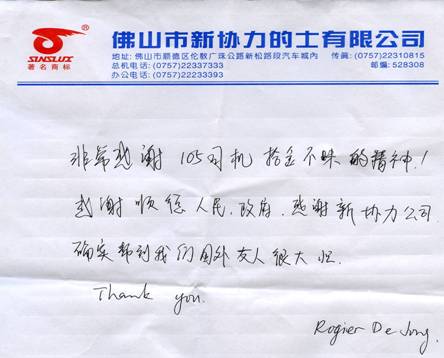 佛山市新协力的士有限公司
SINSLUX
著名商标
地址: 佛山市顺德区伦教广珠公路新松路段汽车城内 传真: (0757)22310815
总机电话: (0757)22337333 邮编: 528308
办公电话: (0757)22233393
非常感谢105司机拾金不昧的精神!
感谢顺德人民、政府、感谢新协力公司
确实帮到我们国外友人很大忙.
Thank you.
Rogier De Jong.